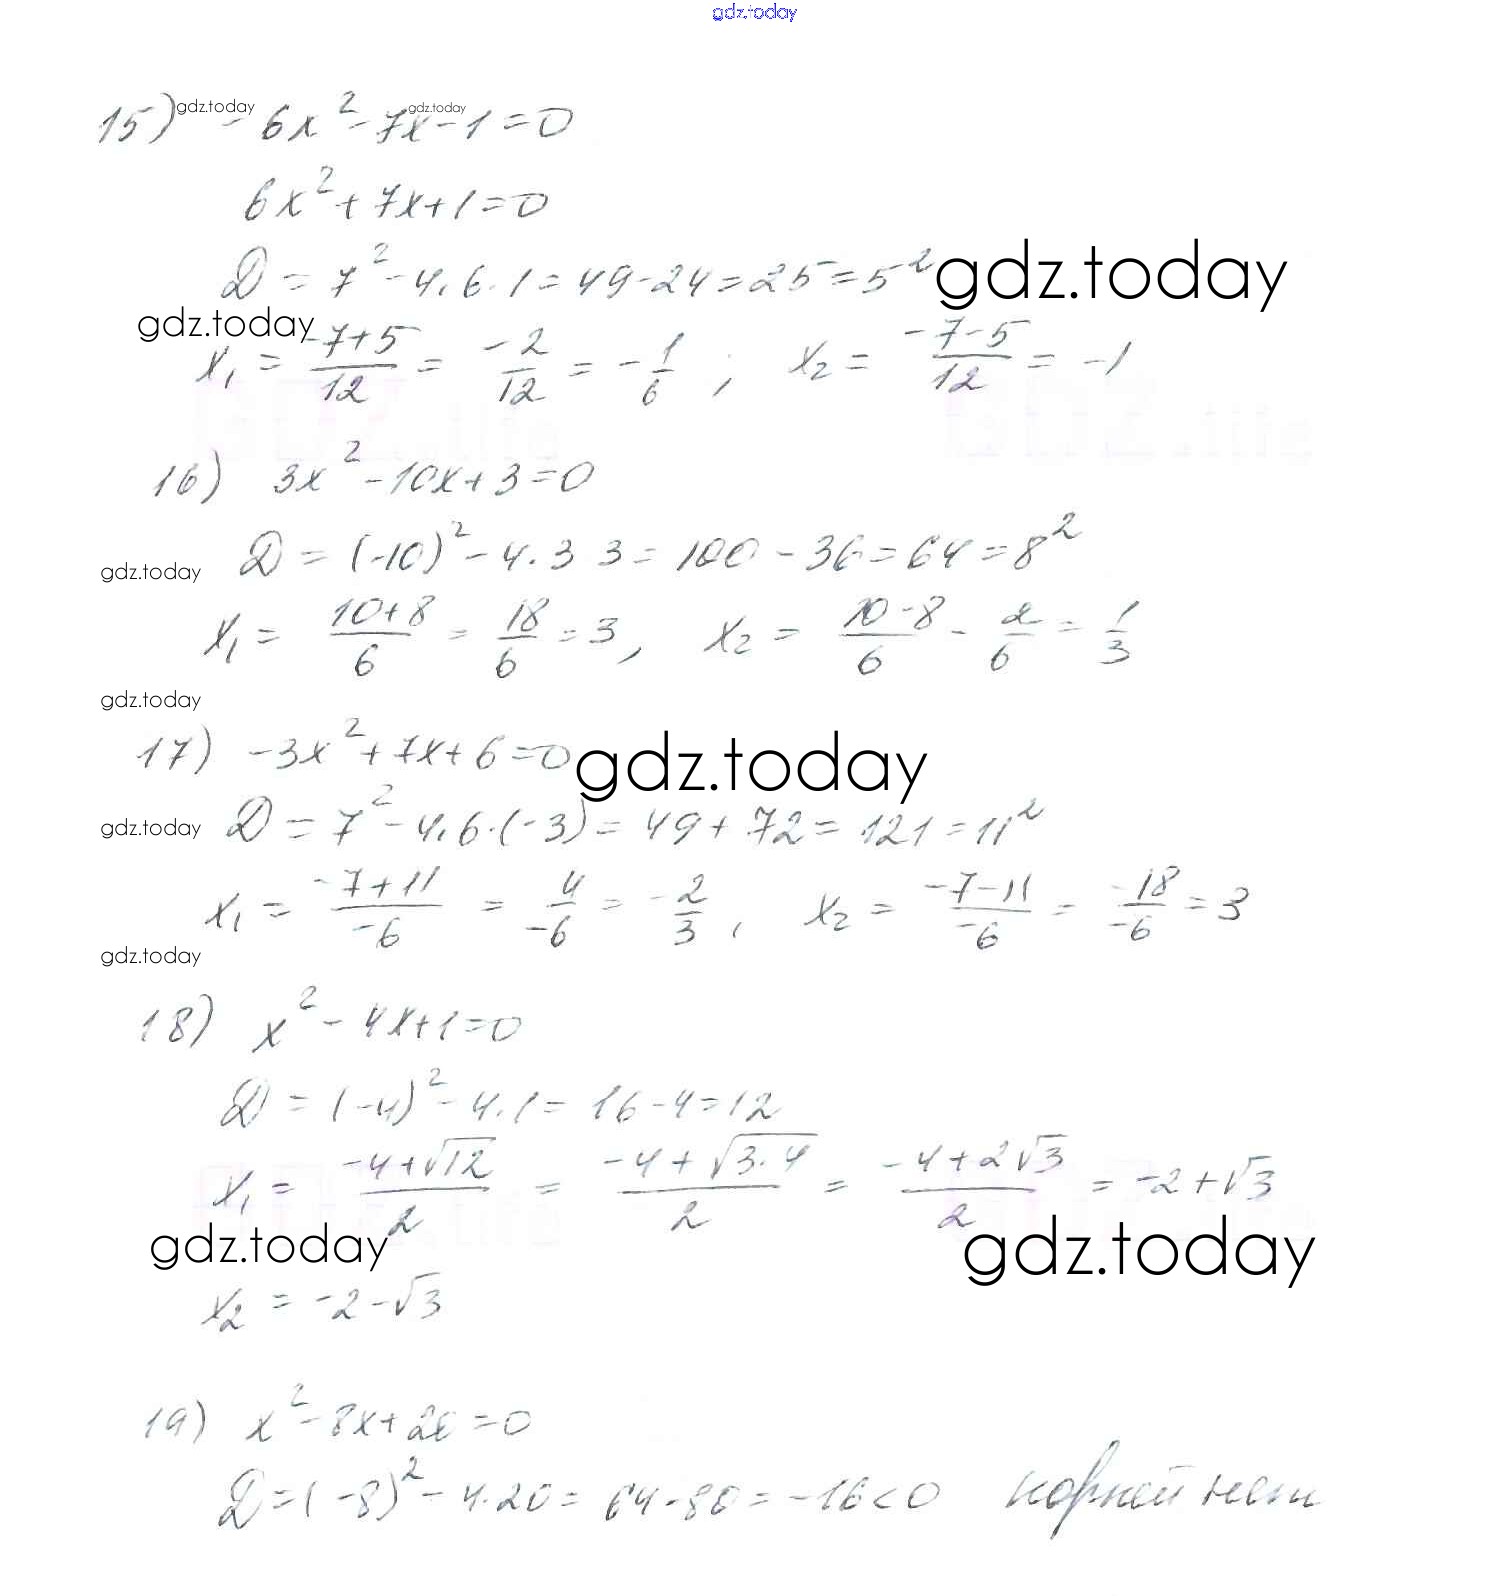 gdz.today
15) gdz.today - 6x² - 7x - 1 = 0 gdz.today
6x² + 7x + 1 = 0
D = 7² - 4·6·1 = 49 - 24 = 25 = 5² gdz.today
gdz.today
x₁ = (-7+5)/12 = -2/12 = -1/6 ; x₂ = (-7-5)/12 = -1
16) 3x² - 10x + 3 = 0
gdz.today D = (-10)² - 4·3 3 = 100 - 36 = 64 = 8²
x₁ = (10+8)/6 = 18/6 = 3, x₂ = (10-8)/6 = 2/6 = 1/3
gdz.today
17) -3x² + 7x + 6 = 0 gdz.today
gdz.today D = 7² - 4·6·(-3) = 49 + 72 = 121 = 11²
x₁ = (-7+11)/-6 = 4/-6 = -2/3, x₂ = (-7-11)/-6 = -18/-6 = 3
gdz.today
18) x² - 4x + 1 = 0
D = (-4)² - 4·1 = 16 - 4 = 12
x₁ = (-4+√12)/2 = (-4+√3·4)/2 = (-4+2√3)/2 = -2+√3
gdz.today gdz.today
x₂ = -2-√3
19) x² - 8x + 20 = 0
D = (-8)² - 4·20 = 64 - 80 = -16 < 0 корней нет